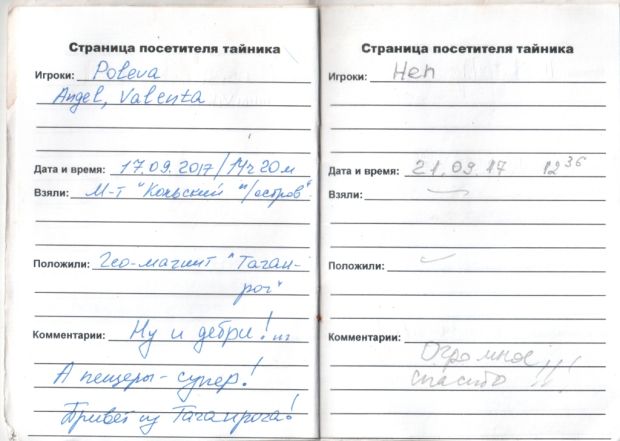 Страница посетителя тайника
Игроки: Poleva
Angel, Valenta
Дата и время: 17.09.2017/14ч 20м
Взяли: М-т "Кольский п/остров"
Положили: Гео-магнит "Таган-
рог"
Комментарии: Ну и дебри!...
А пещеры - супер!
Привет из Таганрога!
Страница посетителя тайника
Игроки: Неп
Дата и время: 21.09.17 12 36
Взяли:
Положили:
Комментарии:
Огромное
спасибо !!!